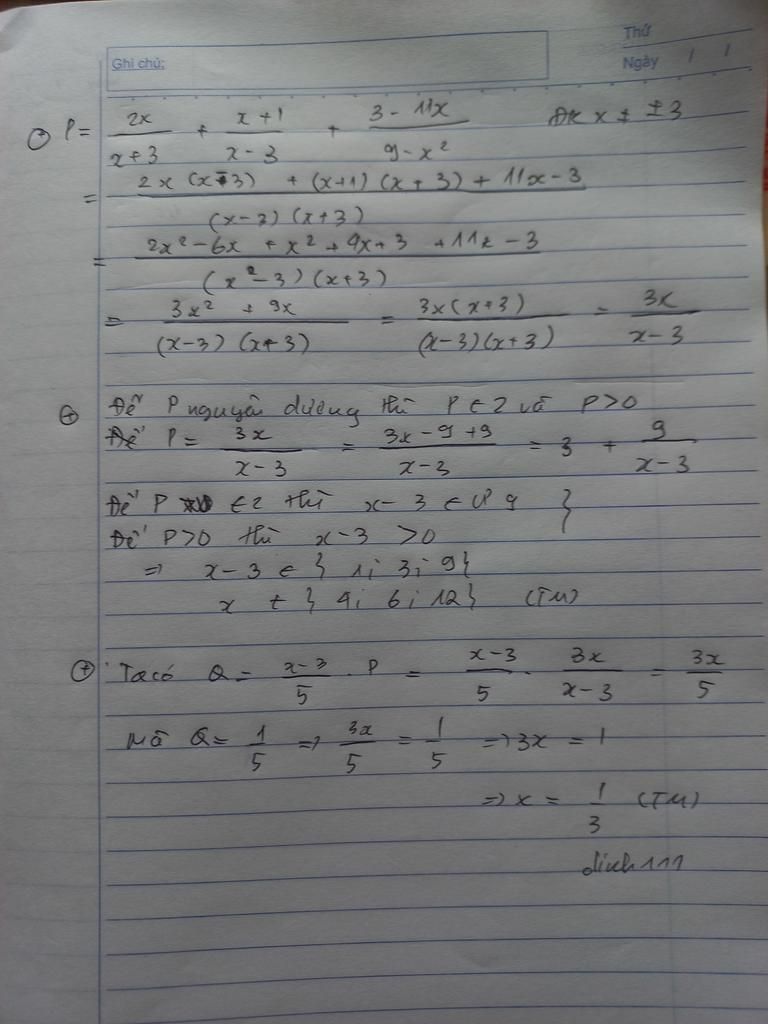 Thứ
Ghi chú:
Ngày / /
+ P = 2x/(x+3) + (x+1)/(x-3) + (3-11x)/(9-x²) ĐK x ≠ ±3
= (2x(x-3) + (x+1)(x+3) + 11x-3)/((x-3)(x+3))
= (2x²-6x + x²+4x+3 +11x-3)/((x²-3)(x+3))
= (3x² + 9x)/((x-3)(x+3)) = 3x(x+3)/((x-3)(x+3)) = 3x/(x-3)
+ Để P nguyên dương thì P ∈ Z và P>0
Để P = 3x/(x-3) = (3x-9+9)/(x-3) = 3 + 9/(x-3)
Để P ∈ Z thì x-3 ∈ Ư 9 }
Để P>0 thì x-3 >0
=> x-3 ∈ { 1; 3; 9}
x ∈ { 4; 6; 12} (TM)
+ Ta có Q = (x-3)/5 . P = (x-3)/5 . 3x/(x-3) = 3x/5
Mà Q = 1/5 => 3x/5 = 1/5 => 3x = 1
=> x = 1/3 (TM)
dinh111